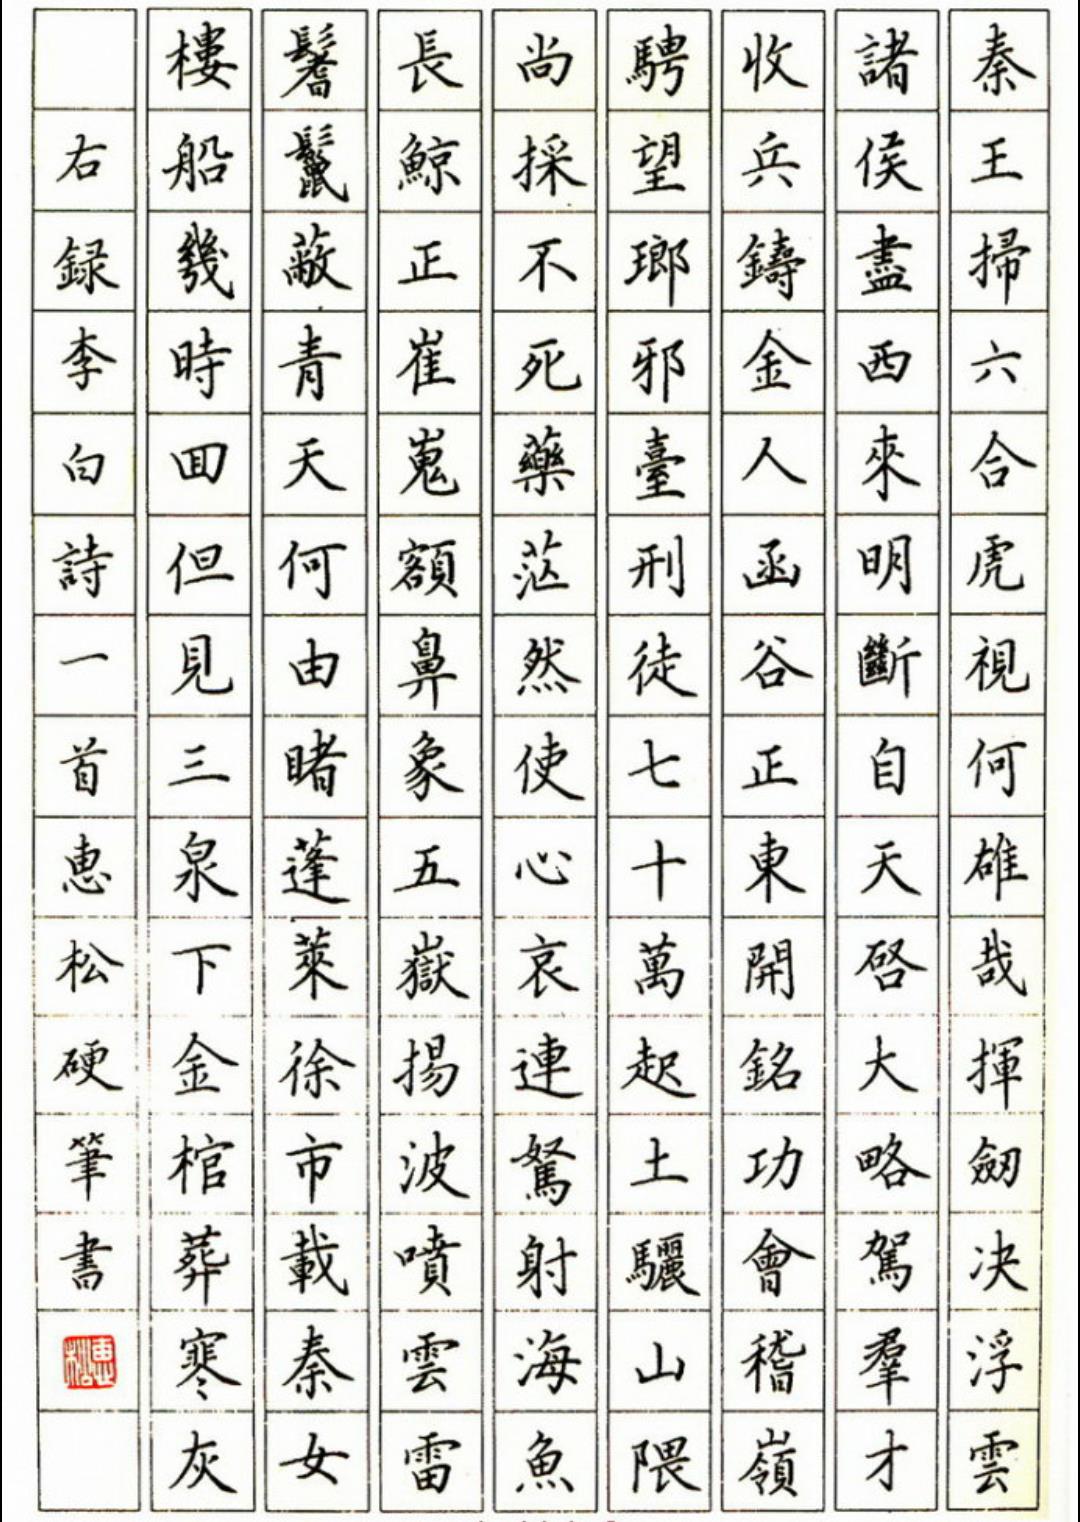 秦王掃六合虎視何雄哉揮劒决浮雲
諸侯盡西來明斷自天啓大略駕羣才
收兵鑄金人函谷正東開銘功會稽嶺
騁望瑯邪臺刑徒七十萬起土驪山隈
尚採不死藥茫然使心哀連駑射海魚
長鯨正崔嵬額鼻象五嶽揚波噴雲雷
鬐鬣蔽青天何由睹蓬萊徐市載秦女
樓船幾時回但見三泉下金棺葬寒灰
右録李白詩一首惠松硬筆書
惠松